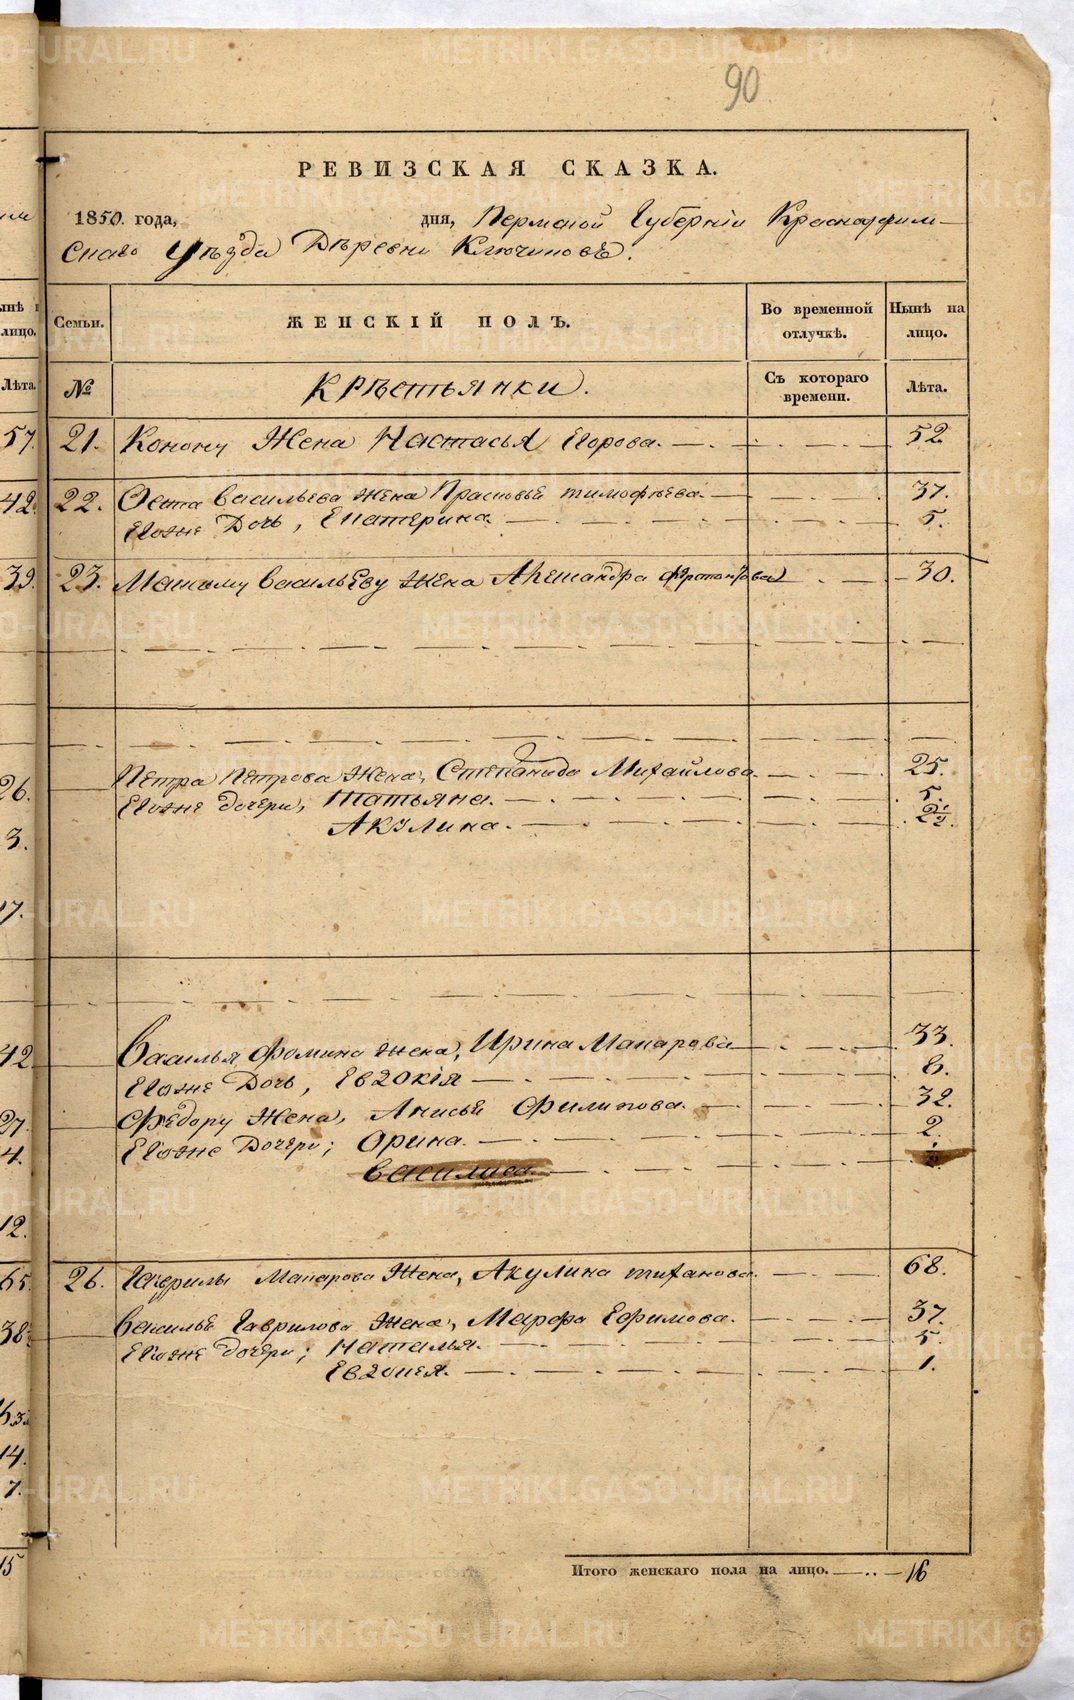 90
РЕВИЗСКАЯ СКАЗКА.
1850. года, дня, Пермской Губернiи Красноуфим-
скаго уѣзда Дѣревни Ключиковъ.
Семьи. ЖЕНСКІЙ ПОЛЪ. Во временной отлучкѣ. Нынѣ на лицо.
№ Крѣстьянки. Съ котораго времени. Лѣта.
21. Конону Жена Настасья Егорова. 52
22. Осипа Васильева жена Прасковья тимофѣева. 37.
Егоже Дочь, Екатерина. 5.
23. Максиму Васильеву жена Александра 30.
Петра Петрова Жена, Степанида Михайлова 25.
Егоже дочери, Татьяна. 5.
Акулина. 2 1/2.
Василья Фомина жена, Ирина Макарова 33.
Егоже Дочь, Евдокія 8.
Федору Жена, Анисья Филипова. 32.
Егоже Дочери; Орина. 2.
Василиса. 1/2
26. Гаврилы Макарова Жена, Акулина тиханова. 68.
Василья Гаврилова Жена, Марфа Ефимова. 37.
Егоже дочери; Наталья. 5.
Евдокея. 1.
Итого женскаго пола на лицо. 16
нынѣ
лицо.
Лѣта.
57.
42.
39.
26.
3.
17.
42
27.
4.
12.
65.
38
14.
7.
15
METRIKI.GASO-URAL.RU